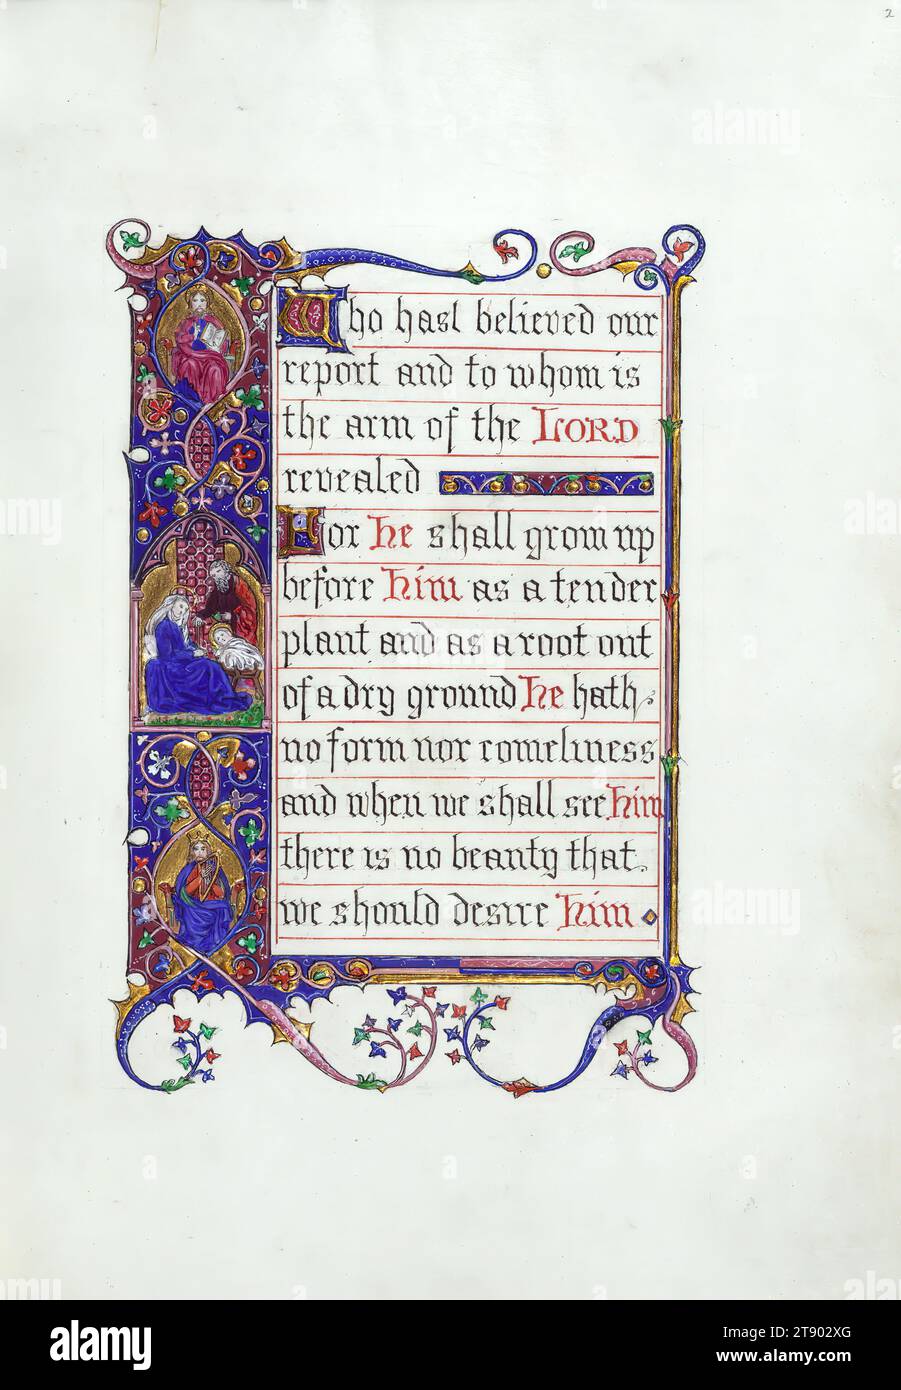 2
Who hast believed our
report and to whom is
the arm of the LORD
revealed
For he shall grow up
before him as a tender
plant and as a root out
of a dry ground he hath
no form nor comeliness
and when we shall see him
there is no beauty that
we should desire him
alamy
Image ID: 2T902XG
www.alamy.com